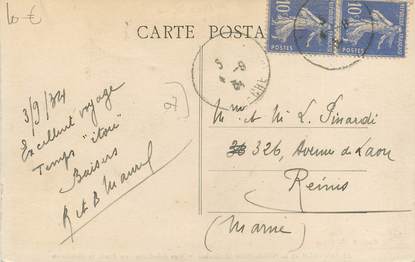 10 €
CARTE POSTA
10
POSTES
10
POSTES
3/9/34
Excellent voyage
Temps "
Baisers
R et B
M et M L. Pinardi
36 326, Avenue de Laon
Reims
(Marne)